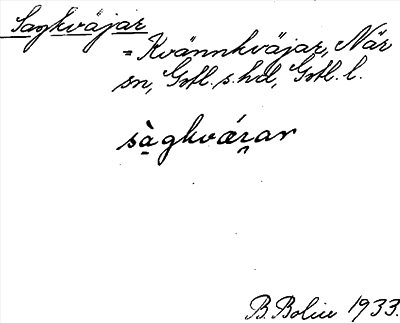 Sagkväjar
= Kvännkväjar, När
sn, Gotl. s. hd, Gotl. l.
sàgkvárar
B. Bolin 1933.